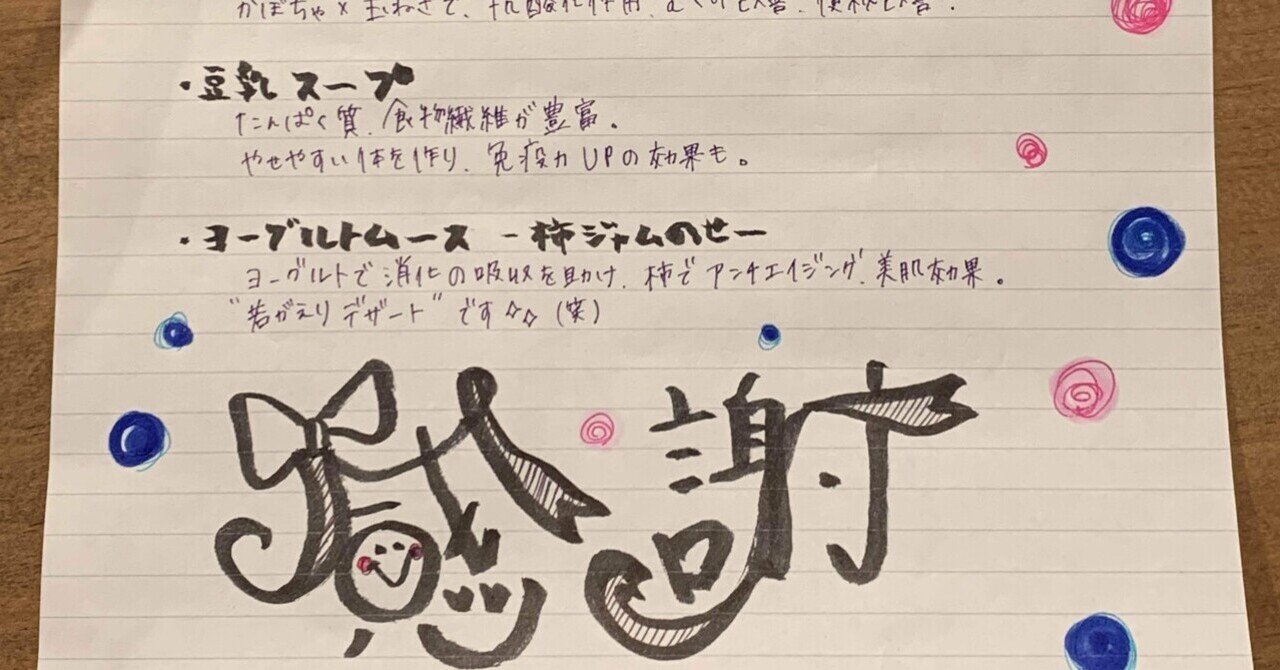 かぼちゃ×玉ねぎで、抗酸化作用、むくみ改善、便秘改善.
・豆乳スープ
たんぱく質、食物繊維が豊富。
やせやすい体を作り、免疫力UPの効果も。
・ヨーグルトムース -柿ジャムのせー
ヨーグルトで消化の吸収を助け、柿でアンチエイジング、美肌効果。
"若がえりデザート"です✧✧(笑)
感謝